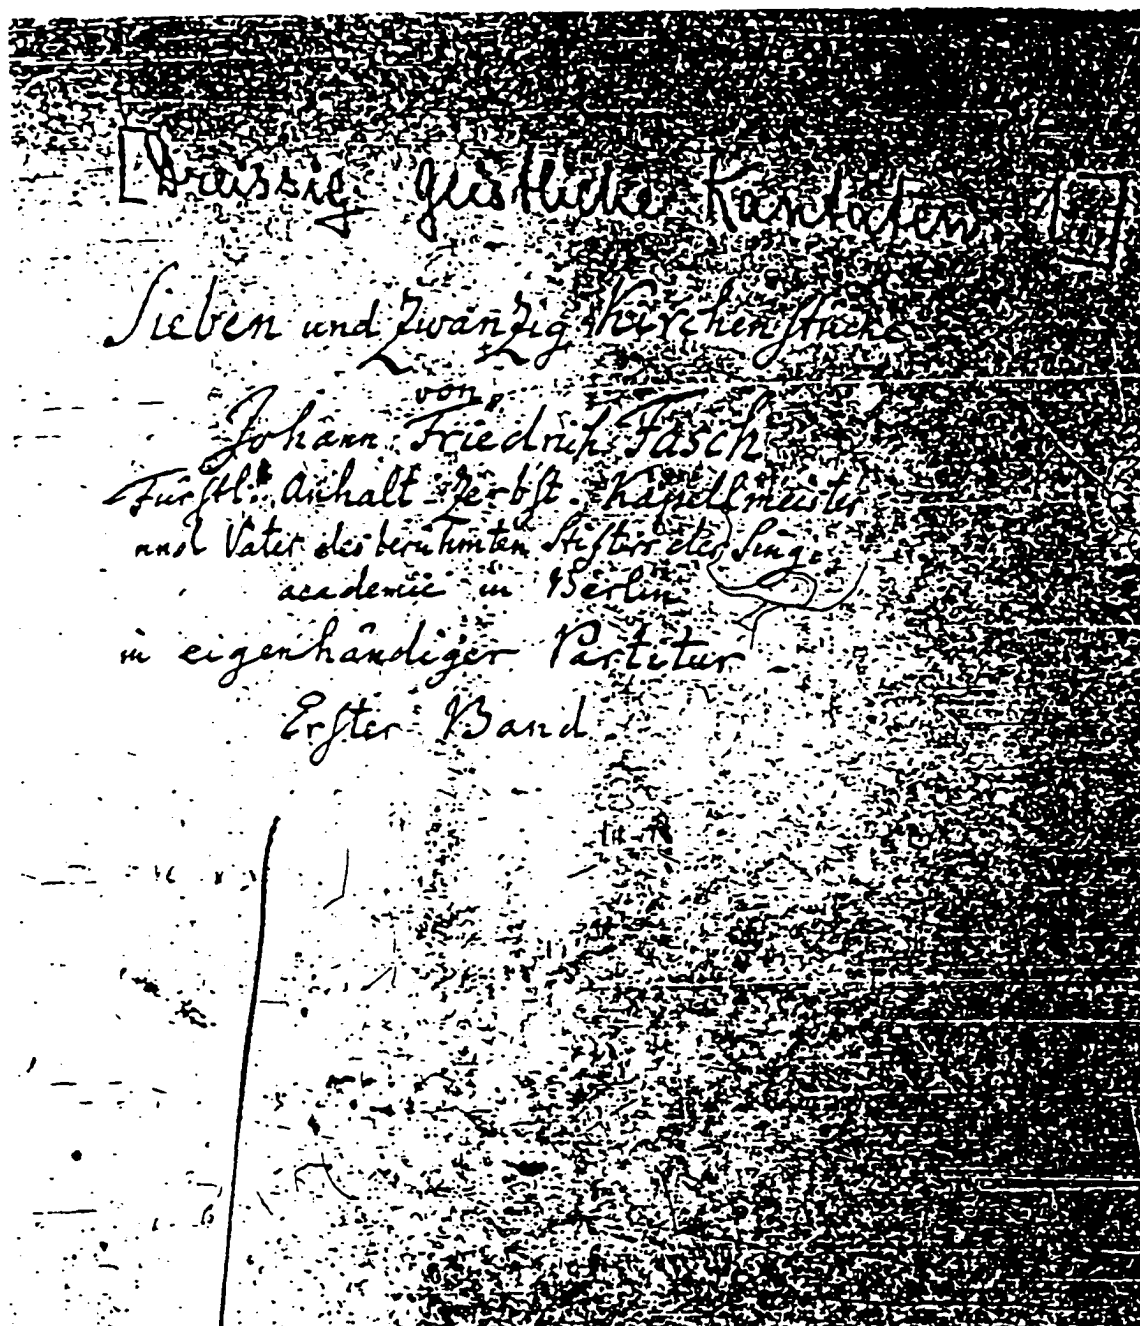 [Dreissig geistliche Kantaten. 1-]
Sieben und Zwanzig Kirchenstücke
von
Johann Friedrich Fasch
Fürstl. Anhalt-Zerbst. Kapellmeister
und Vater des berühmten Stifters der Sing-
academie in Berlin
in eigenhändiger Partitur -
Erster Band